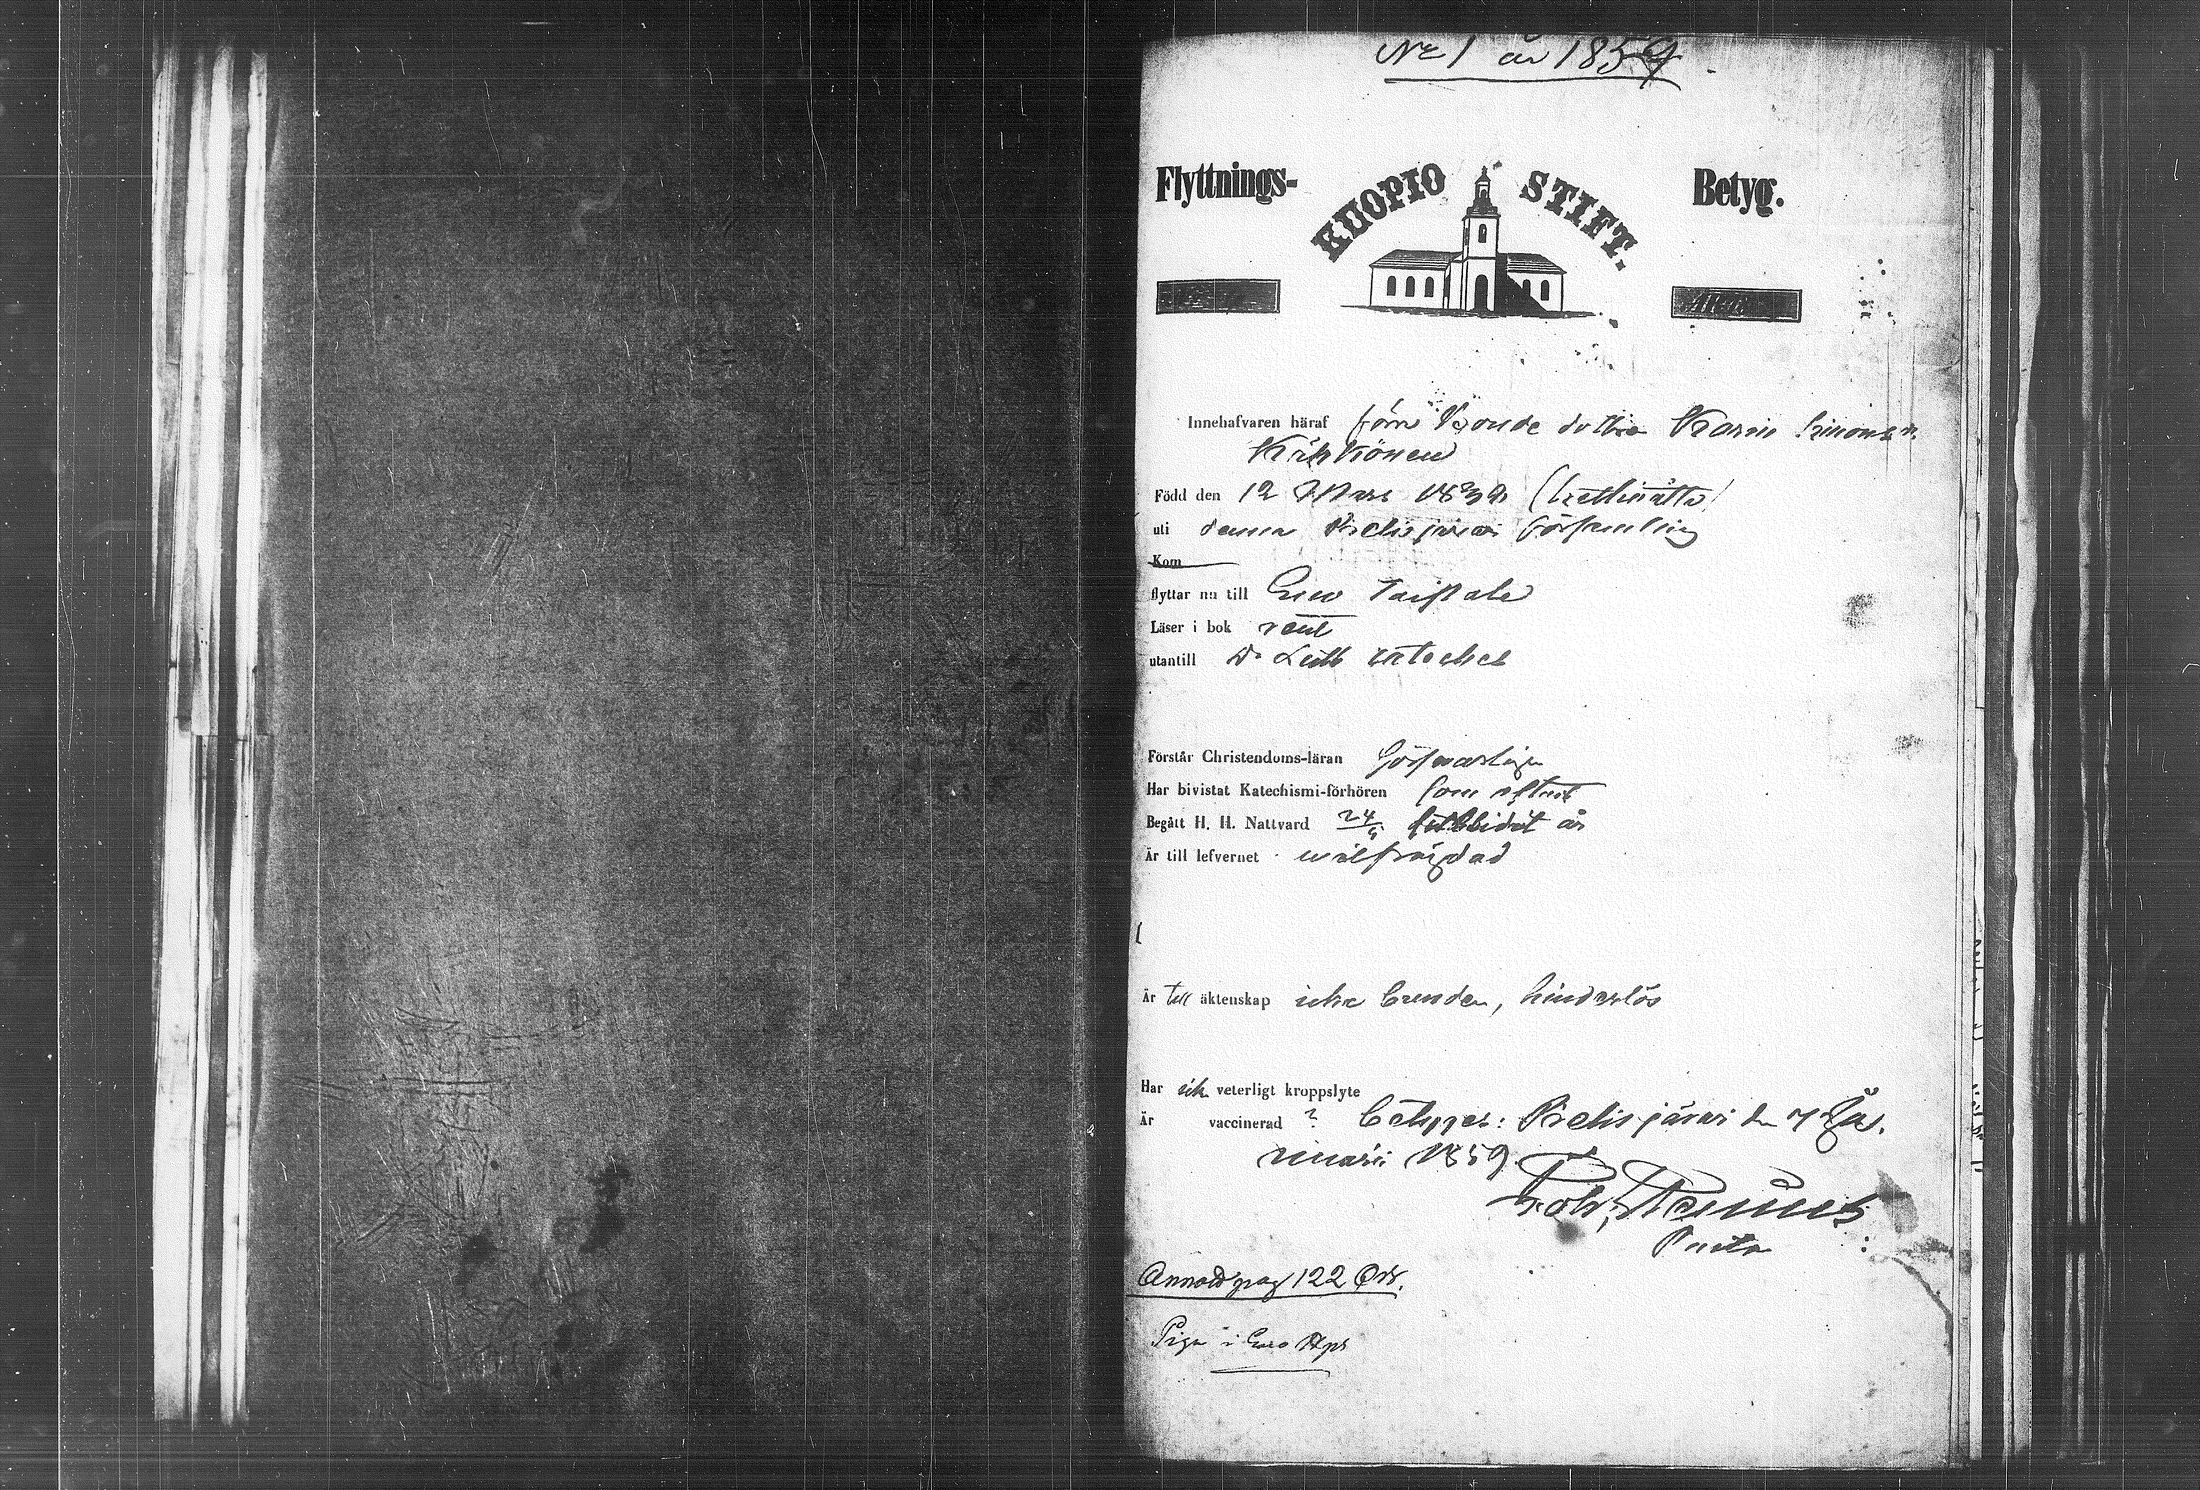 No 1 år 1859
Flyttnings- KUOPIO STIFT. Betyg.
Innehafvaren häraf förra Bonde dottra Karin Simonsn
Kärkkönen
Född den 12 Mars 1832 (trettiotvå)
uti denna Pielisjärvi församling
Kom
flyttar nu till Eno Taipale
Läser i bok rent
utantill Do Luth cateches
Förstår Christendoms-läran försvarligen
Har bivistat Katechismi-förhören som oftast
Begått H. H. Nattvard 24/ sistlidit år
Är till lefvernet välfrägdad
Är till äktenskap icke bunden, hinderlös
Har ick veterligt kroppslyte
Är vaccinerad ? Betygges: Pielisjärvi den 7 Ja-
nuarii 1859.
Past
Annotd pag 122
Piga i Eno Kps